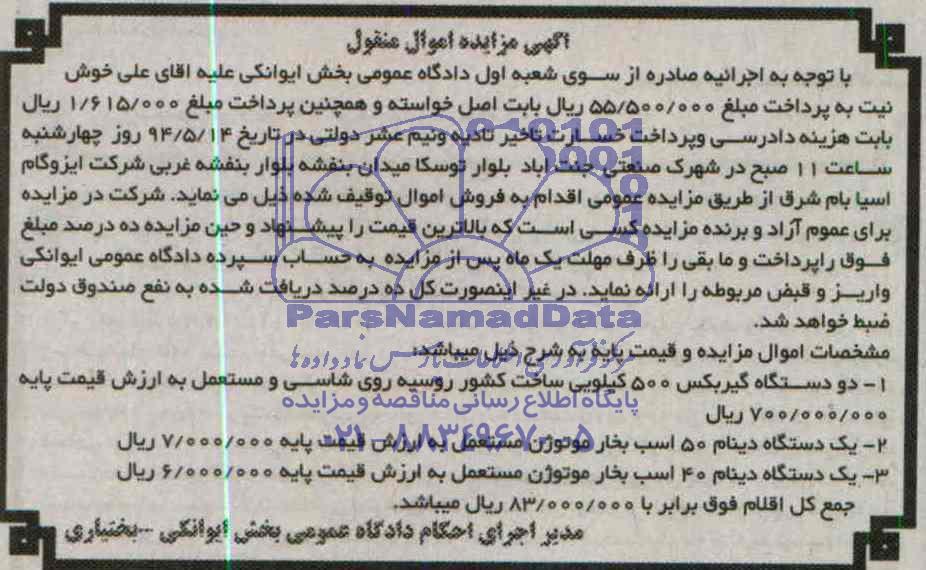 آگهی مزایده اموال منقول
با توجه به اجرائیه صادره از سوی شعبه اول دادگاه عمومی بخش ایوانکی علیه اقای علی خوش
نیت به پرداخت مبلغ ۵۵/۵۰۰/۰۰۰ ریال بابت اصل خواسته و همچنین پرداخت مبلغ ۱/۶۱۵/۰۰۰ ریال
بابت هزینه دادرسی وپرداخت خسارت تاخیر تادیه ونیم عشر دولتی در تاریخ ۹۴/۵/۱۴ روز چهارشنبه
ساعت ۱۱ صبح در شهرک صنعتی جنت آباد بلوار توسکا میدان بنفشه بلوار بنفشه غربی شرکت ایزوگام
اسیا بام شرق از طریق مزایده عمومی اقدام به فروش اموال توقیف شده ذیل می نماید. شرکت در مزایده
برای عموم آزاد و برنده مزایده کسی است که بالاترین قیمت را پیشنهاد و حین مزایده ده درصد مبلغ
فوق راپرداخت و ما بقی را ظرف مهلت یک ماه پس از مزایده به حساب سپرده دادگاه عمومی ایوانکی
واریز و قبض مربوطه را ارائه نماید. در غیر اینصورت کل ده درصد دریافت شده به نفع صندوق دولت
ضبط خواهد شد.
ParsNamadData
مشخصات اموال مزایده و قیمت پایه به شرح ذیل میباشد:
۱- دو دستگاه گیربکس ۵۰۰ کیلویی ساخت کشور روسیه روی شاسی و مستعمل به ارزش قیمت پایه
پایگاه اطلاع رسانی مناقصه و مزایده
۷۰۰/۰۰۰/۰۰۰ ریال
۰۲۱-۸۸۳۴۹۶۷۰-۵
۲- یک دستگاه دینام ۵۰ اسب بخار موتوژن مستعمل به ارزش قیمت پایه ۷/۰۰۰/۰۰۰ ریال
۳- یک دستگاه دینام ۴۰ اسب بخار موتوژن مستعمل به ارزش قیمت پایه ۶/۰۰۰/۰۰۰ ریال
جمع کل اقلام فوق برابر با ۸۳/۰۰۰/۰۰۰ ریال میباشد.
مدیر اجرای احکام دادگاه عمومی بخش ایوانکی -بختیاری